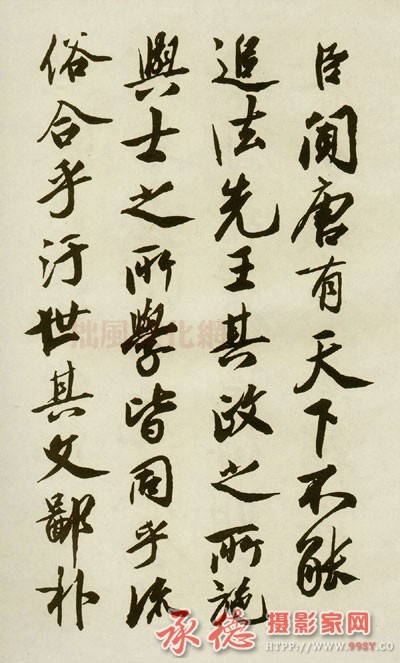 臣闻唐有天下不能
追法先王其政之所施
與士之所學皆同乎流
俗合乎汙世其文鄙朴
拙風文化網
承德摄影家网
www.99sy.co